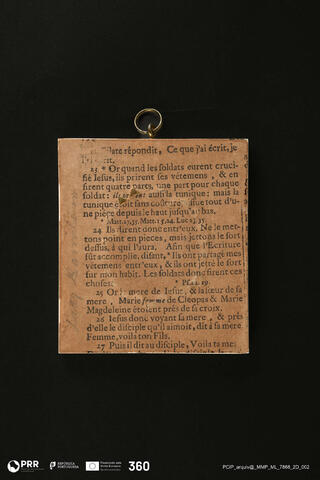 ilate répondit, Ce que j'ai écrit, je
l'
23 * Or quand les soldats eurent cruci-
fié Jesus, ils prirent ses vêtemens, & en
firent quatre parts, une part pour chaque
soldat: aussi la tunique: mais la
tunique étoit sans coûture, tissue tout d'u-
ne piéce depuis le haut jusqu'au bas.
* Matt. 27. 35. Marc 15. 24. Luc 23. 35.
24 Ils dirent donc entr'eux, Ne le met-
tons point en pieces, mais jettons le sort
dessus, à qui l'aura. Afin que l'Ecriture
fût accomplie, disant, * Ils ont partagé mes
vêtemens entr'eux, & ils ont jetté le sort
sur mon habit. Les soldats donc firent ces
choses. * Ps. 22. 19.
25 Or la mere de Jesus, & la sœur de sa
mere, Marie femme de Cleopas & Marie
Magdeleine étoient prés de sa croix.
26 Jesus donc voyant sa mere, & prés
d'elle le disciple qu'il aimoit, dit à sa mere
Femme, voila ton Fils.
27 Puis il dit au disciple, Voila ta me:
PRR
REPÚBLICA PORTUGUESA
Financiado pela União Europeia
360
PCIP_arquiv@_MMP_ML_7868_2D_002